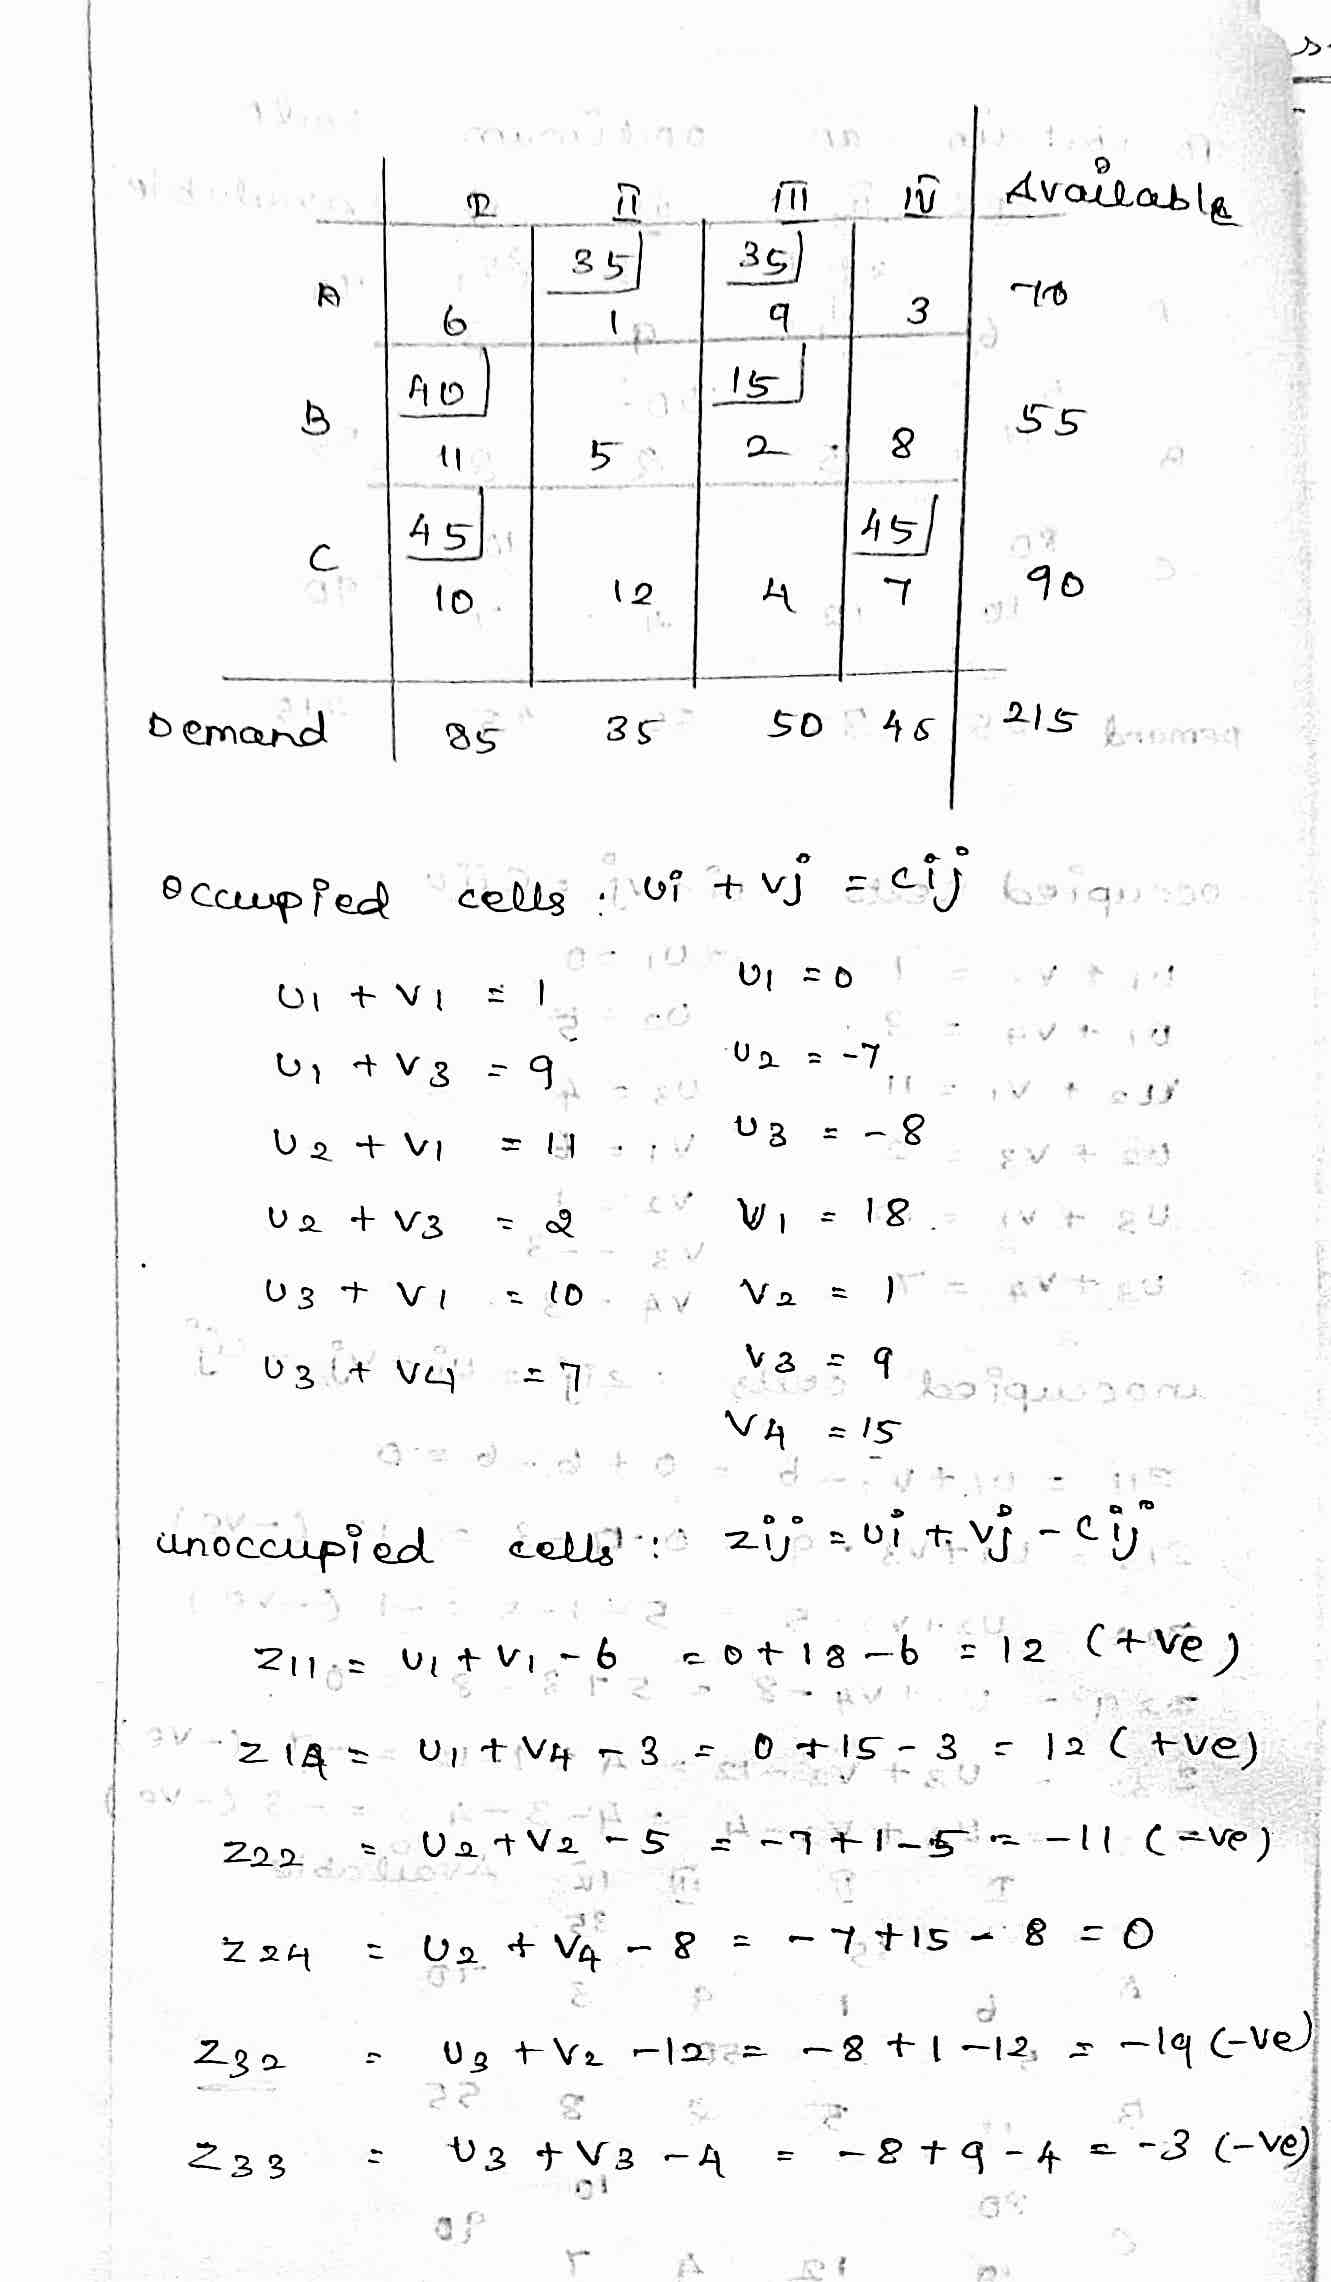 I II III IV Available
35 35
A 6 1 9 3 70
40 15
B 11 5 2 8 55
45 45
C 10 12 4 7 90
Demand 85 35 50 45 215
occupied cells : ui + vj = cij
U1 + V1 = 1 U1 = 0
U1 + V3 = 9 U2 = -7
U2 + V1 = 11 U3 = -8
U2 + V3 = 2 V1 = 18
U3 + V1 = 10 V2 = 1
U3 + V4 = 7 V3 = 9
V4 = 15
unoccupied cells : zij = ui + vj - cij
Z11 = U1 + V1 - 6 = 0 + 18 - 6 = 12 (+ve)
Z14 = U1 + V4 - 3 = 0 + 15 - 3 = 12 (+ve)
Z22 = U2 + V2 - 5 = -7 + 1 - 5 = -11 (-ve)
Z24 = U2 + V4 - 8 = -7 + 15 - 8 = 0
Z32 = U3 + V2 - 12 = -8 + 1 - 12 = -19 (-ve)
Z33 = U3 + V3 - 4 = -8 + 9 - 4 = -3 (-ve)